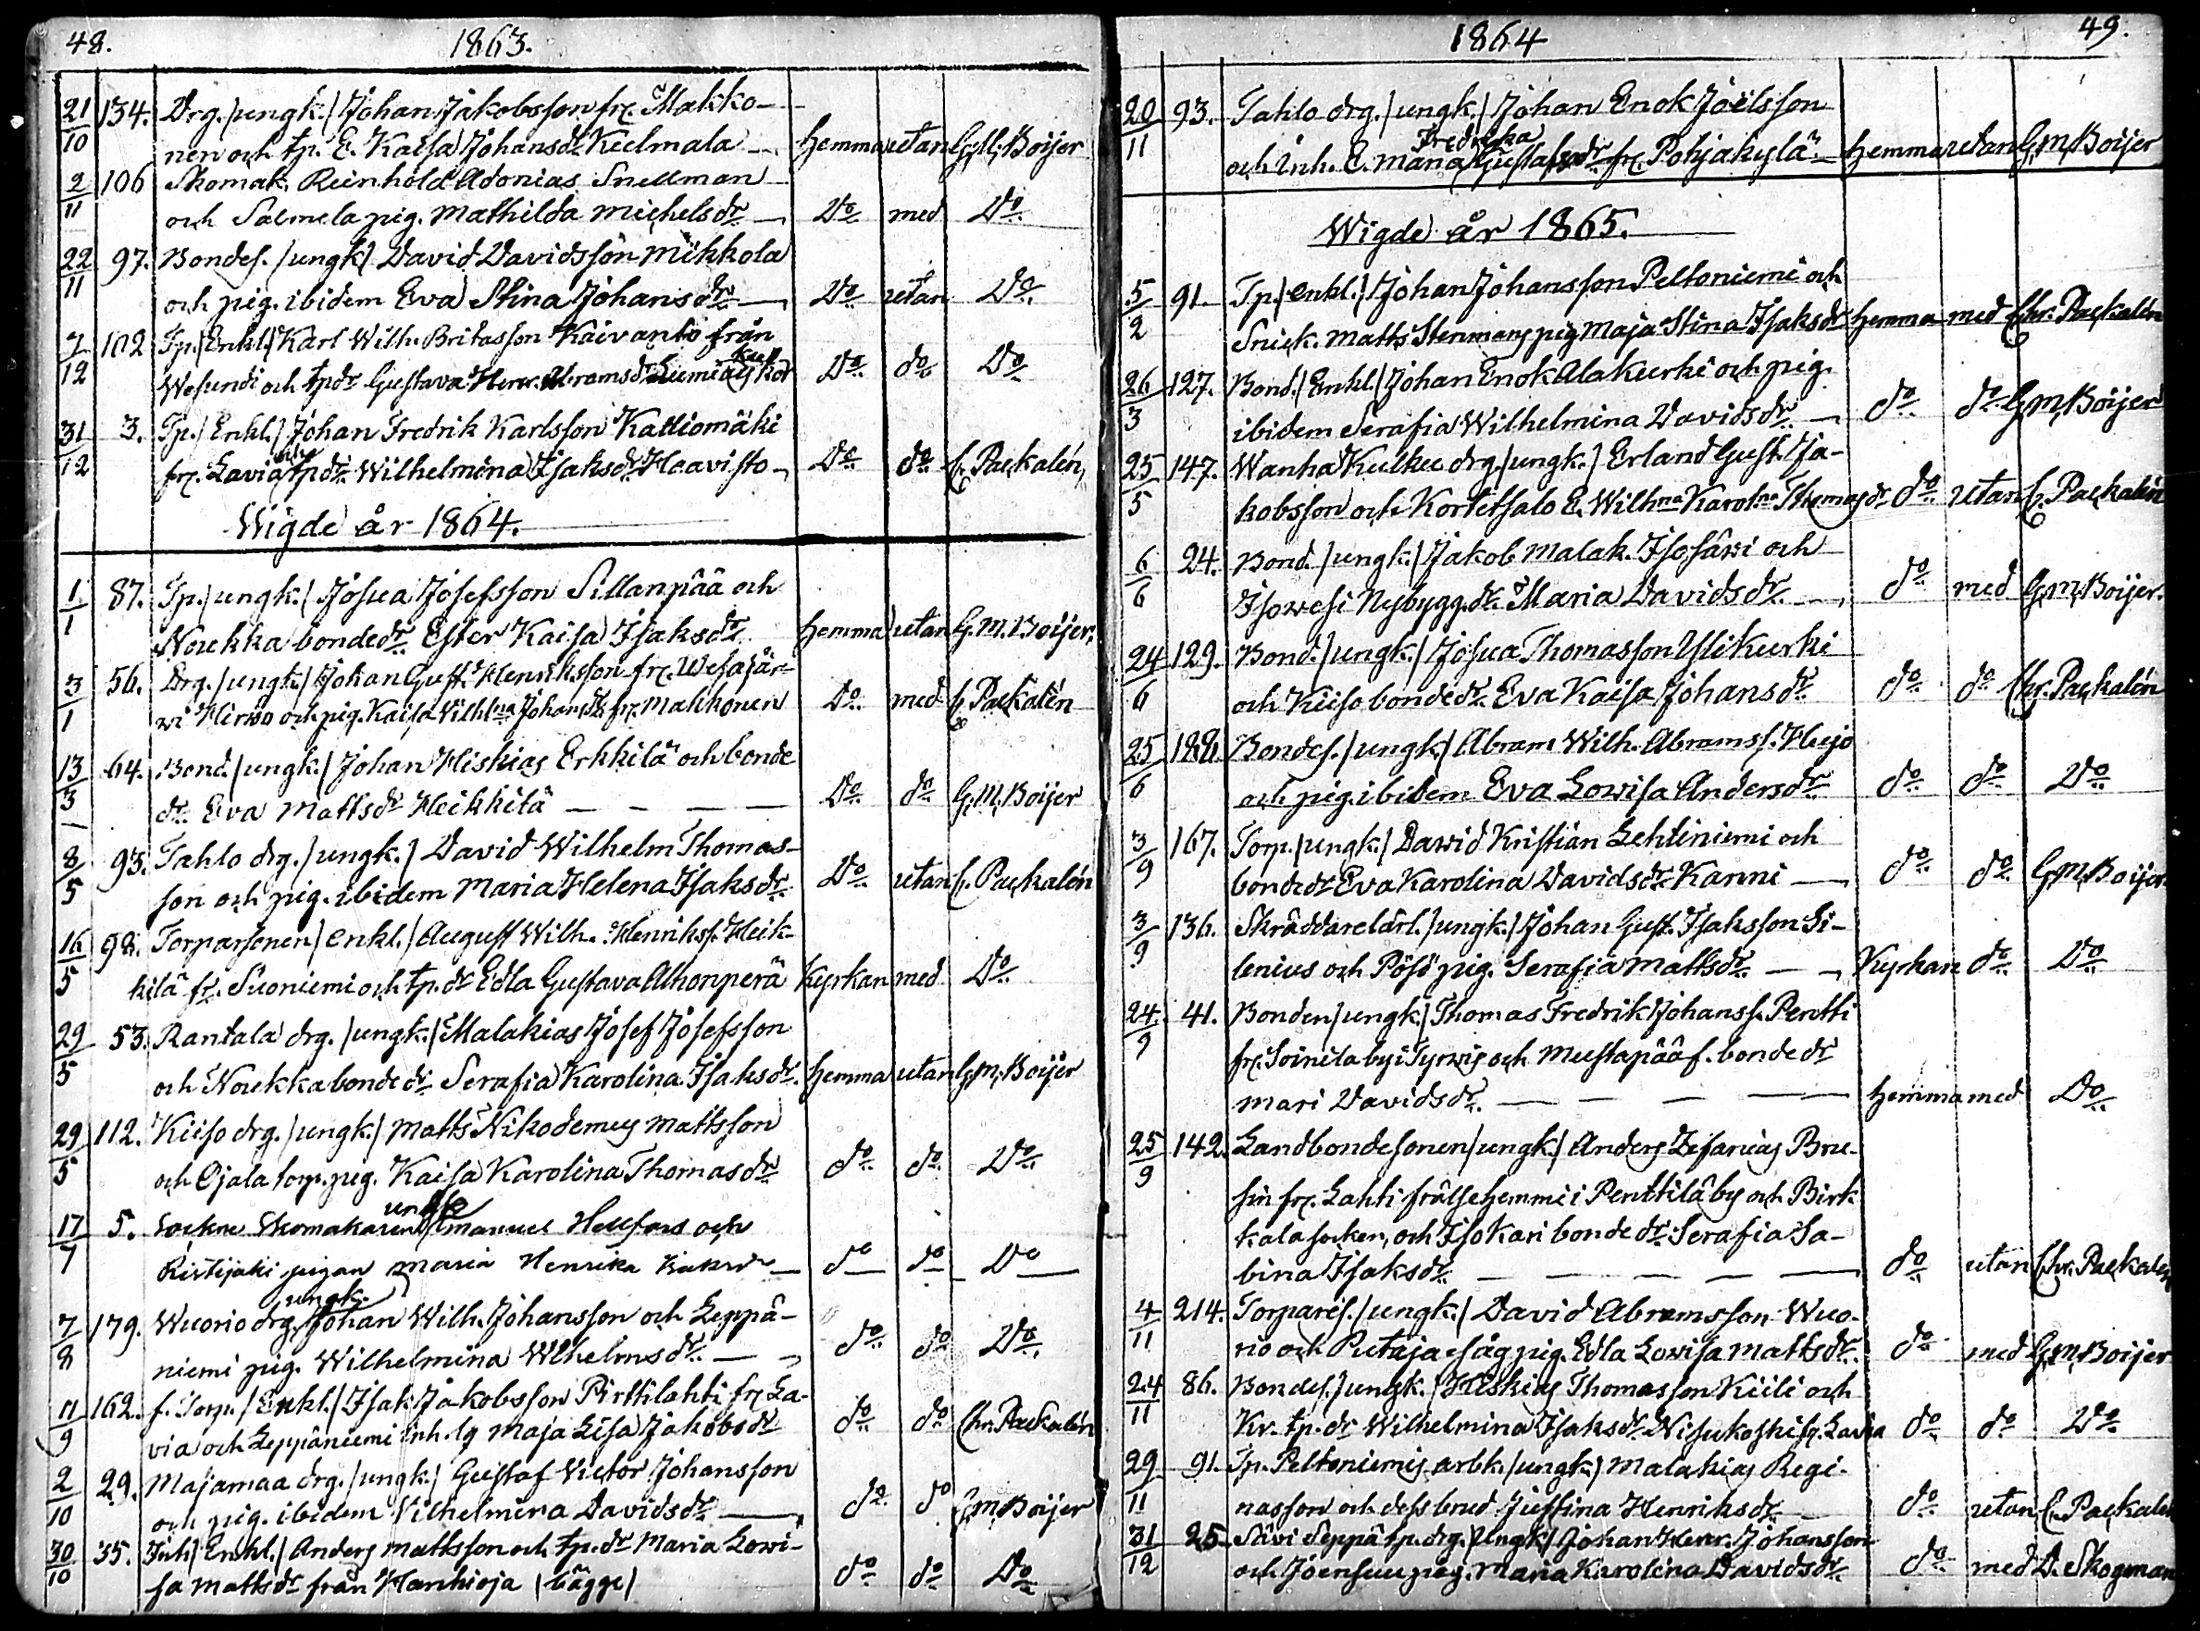 48. 1863.
21/10 134. Drg. /ungk./ Johan Jakobsson frc. Makko-
nen och tp. E. Kaisa Johansdr Keelmala hemma utan G.M. Boijer
2/11 106 Skomak. Reinhold Adonias Snellman
och Salmela pig. Mathilda Michelsdr Do med Do
22/11 97. Bondes. /ungk/ David Davidsson Mikkola
och pig. ibidem Eva Stina Johansdr Do utan Do
7/12 102 Tp. /Enkl/ Karl Wilh. Britasson Kaivanto från
Wesundi och tpdr Gustava Henr. Abramsdr Do do Do
31/12 3. Tp. /Enkl./ Johan Fredrik Karlsson Kalliomäki
frc. Lavia och tpdr Wilhelmina Isaksdr Haavisto Do do C. Packalén
Wigde år 1864.
1/1 87. Tp. /ungk./ Josua Josefsson Sillanpää och
Noukka bondedr. Ester Kaisa Isaksdr hemma utan G.M. Boijer
3/1 56. Drg. /ungk./ Johan Gust. Henriksson frc. Wesajär-
wi Hirwo och pig. Kaisa Vilhlna Johansdr frc. Makkonen Do med C. Packalén
13/3 64. Bond. /ungk./ Johan Hiskias Erkkilä och bonde
dr. Eva Mattsdr Heikkilä Do do G.M. Boijer
8/5 93. Tahlo drg. /ungk./ David Wilhelm Thomas-
son och pig. ibidem Maria Helena Isaksdr Do utan C. Packalén
16/5 98. Torparsonen /enkl./ August Wilh. Henrikss. Heik-
kilä fr. Suoniemi och tp. dr Edla Gustava Alhonperä Kyrkan med Do
29/5 53. Rantala drg. /ungk./ Malakias Josef Josefsson
och Noukka bondedr. Serafia Karolina Isaksdr. hemma utan G.M. Boijer
29/5 112. Kiiso drg. /ungk./ Matts Nikodemus Mattsson
och Ojala torp. pig. Kaisa Karolina Thomasdr do do Do
17/7 5. Sockne Skomakaren ungk Emanuel Hellfors och
Ristijaki pigan Maria Henrika Isaksdr do do Do
7/8 179. Wuorio drg. ungk. Johan Wilh. Johansson och Leppä-
niemi pig. Wilhelmina Wilhelmsdr. do do Do
11/9 162. f. Torp. /Enkl./ Isak Jakobsson Pirttilahti frc. La-
via och Leppäniemi inh. Maja Lisa Jakobsdr do do Chr. Packalén
2/10 29. Majamaa drg. /ungk./ Gustaf Victor Johansson
och pig. ibidem Vilhelmina Davidsdr do do G.M. Boijer
30/10 35. Inh. /Enkl./ Anders Mattsson och tp. dr Maria Lowi-
sa Mattsdr från Hanhioja /bägge/ do do Do
1864 49.
20/11 93. Tahlo drg. /ungk./ Johan Enok Joelsson
och Inh. E. Maria Fredrika Gustafsdr frc. Pohjakylä hemma utan G.M. Boijer
Wigde år 1865.
5/2 91 Tp. /enkl./ Johan Johansson Peltoniemi och
Snick. Matts Stenmans pig Maja Stina Isaksdr hemma med Chr. Packalén
26/3 127. Bond. /Enkl./ Johan Enok Alakurki och pig.
ibidem Serafia Wilhelmina Davidsdr. do do G.M. Boijer
25/5 147. Wanha Kulku drg. /ungk./ Erland Gust. Ja-
kobsson och Kortetsalo E. Wilhna Karolna Thomasdr do utan C. Packalén
6/6 24. Bond. /ungk./ Jakob Malak. Isosäwi och
Isowesi Nybygg. dr. Maria Davidsdr. do med G.M. Boijer
24/6 129. Bond. /ungk./ Josua Thomasson Ylikurki
och Kiiso bondedr. Eva Kaisa Johansdr do do Chr. Packalén
25/6 188. Bondes. /ungk/ Abram Wilh. Abramss. Heijo
och pig. ibidem Eva Lowisa Andersdr do do Do
3/9 167. Torp. /ungk./ Dawid Kristian Lehtiniemi och
bondedr Eva Karolina Davidsdr. Kanni do do G.M. Boijer
3/9 136. Skräddarelärl. /ungk./ Johan Gust. Isaksson Si-
lenius och Pösö pig. Serafia Mattsdr. Kyrkan do Do
24/9 41. Bonden /ungk./ Thomas Fredrik Johanss. Pentti
frc. Soinila by i Tyrwis och Mustapää f. bondedr
Mari Davidsdr. hemma med Do
25/9 142. Landbondesonen /ungk./ Anders Zefanias Bru-
sin frc. Lahti frälsehemm. i Penttilä by och Birk
kala socken, och Isokari bondedr. Serafia Sa-
bina Isaksdr. do utan Chr. Packalén
4/11 214. Torpares. /ungk./ David Abramsson Wuo-
rio och Putaja såg pig. Edla Lowisa Mattsdr. do med G.M. Boijer
24/11 86. Bondes. /ungk./ Hiskias Thomasson Kiili och
Kr. tp. dr Wilhelmina Isaksdr. Nisukoski frc. Lavia do do Do
29/11 91. Tp. Peltoniemis arbk. /ungk./ Malakias Regi-
nasson och dess brud Justina Henriksdr. do utan C. Packalén
31/12 25 Sävi Seppä tp. drg. /Ungk/ Johan Henr. Johansson
och Joensuu pig. Maria Karolina Davidsdr. do med D. Skogman